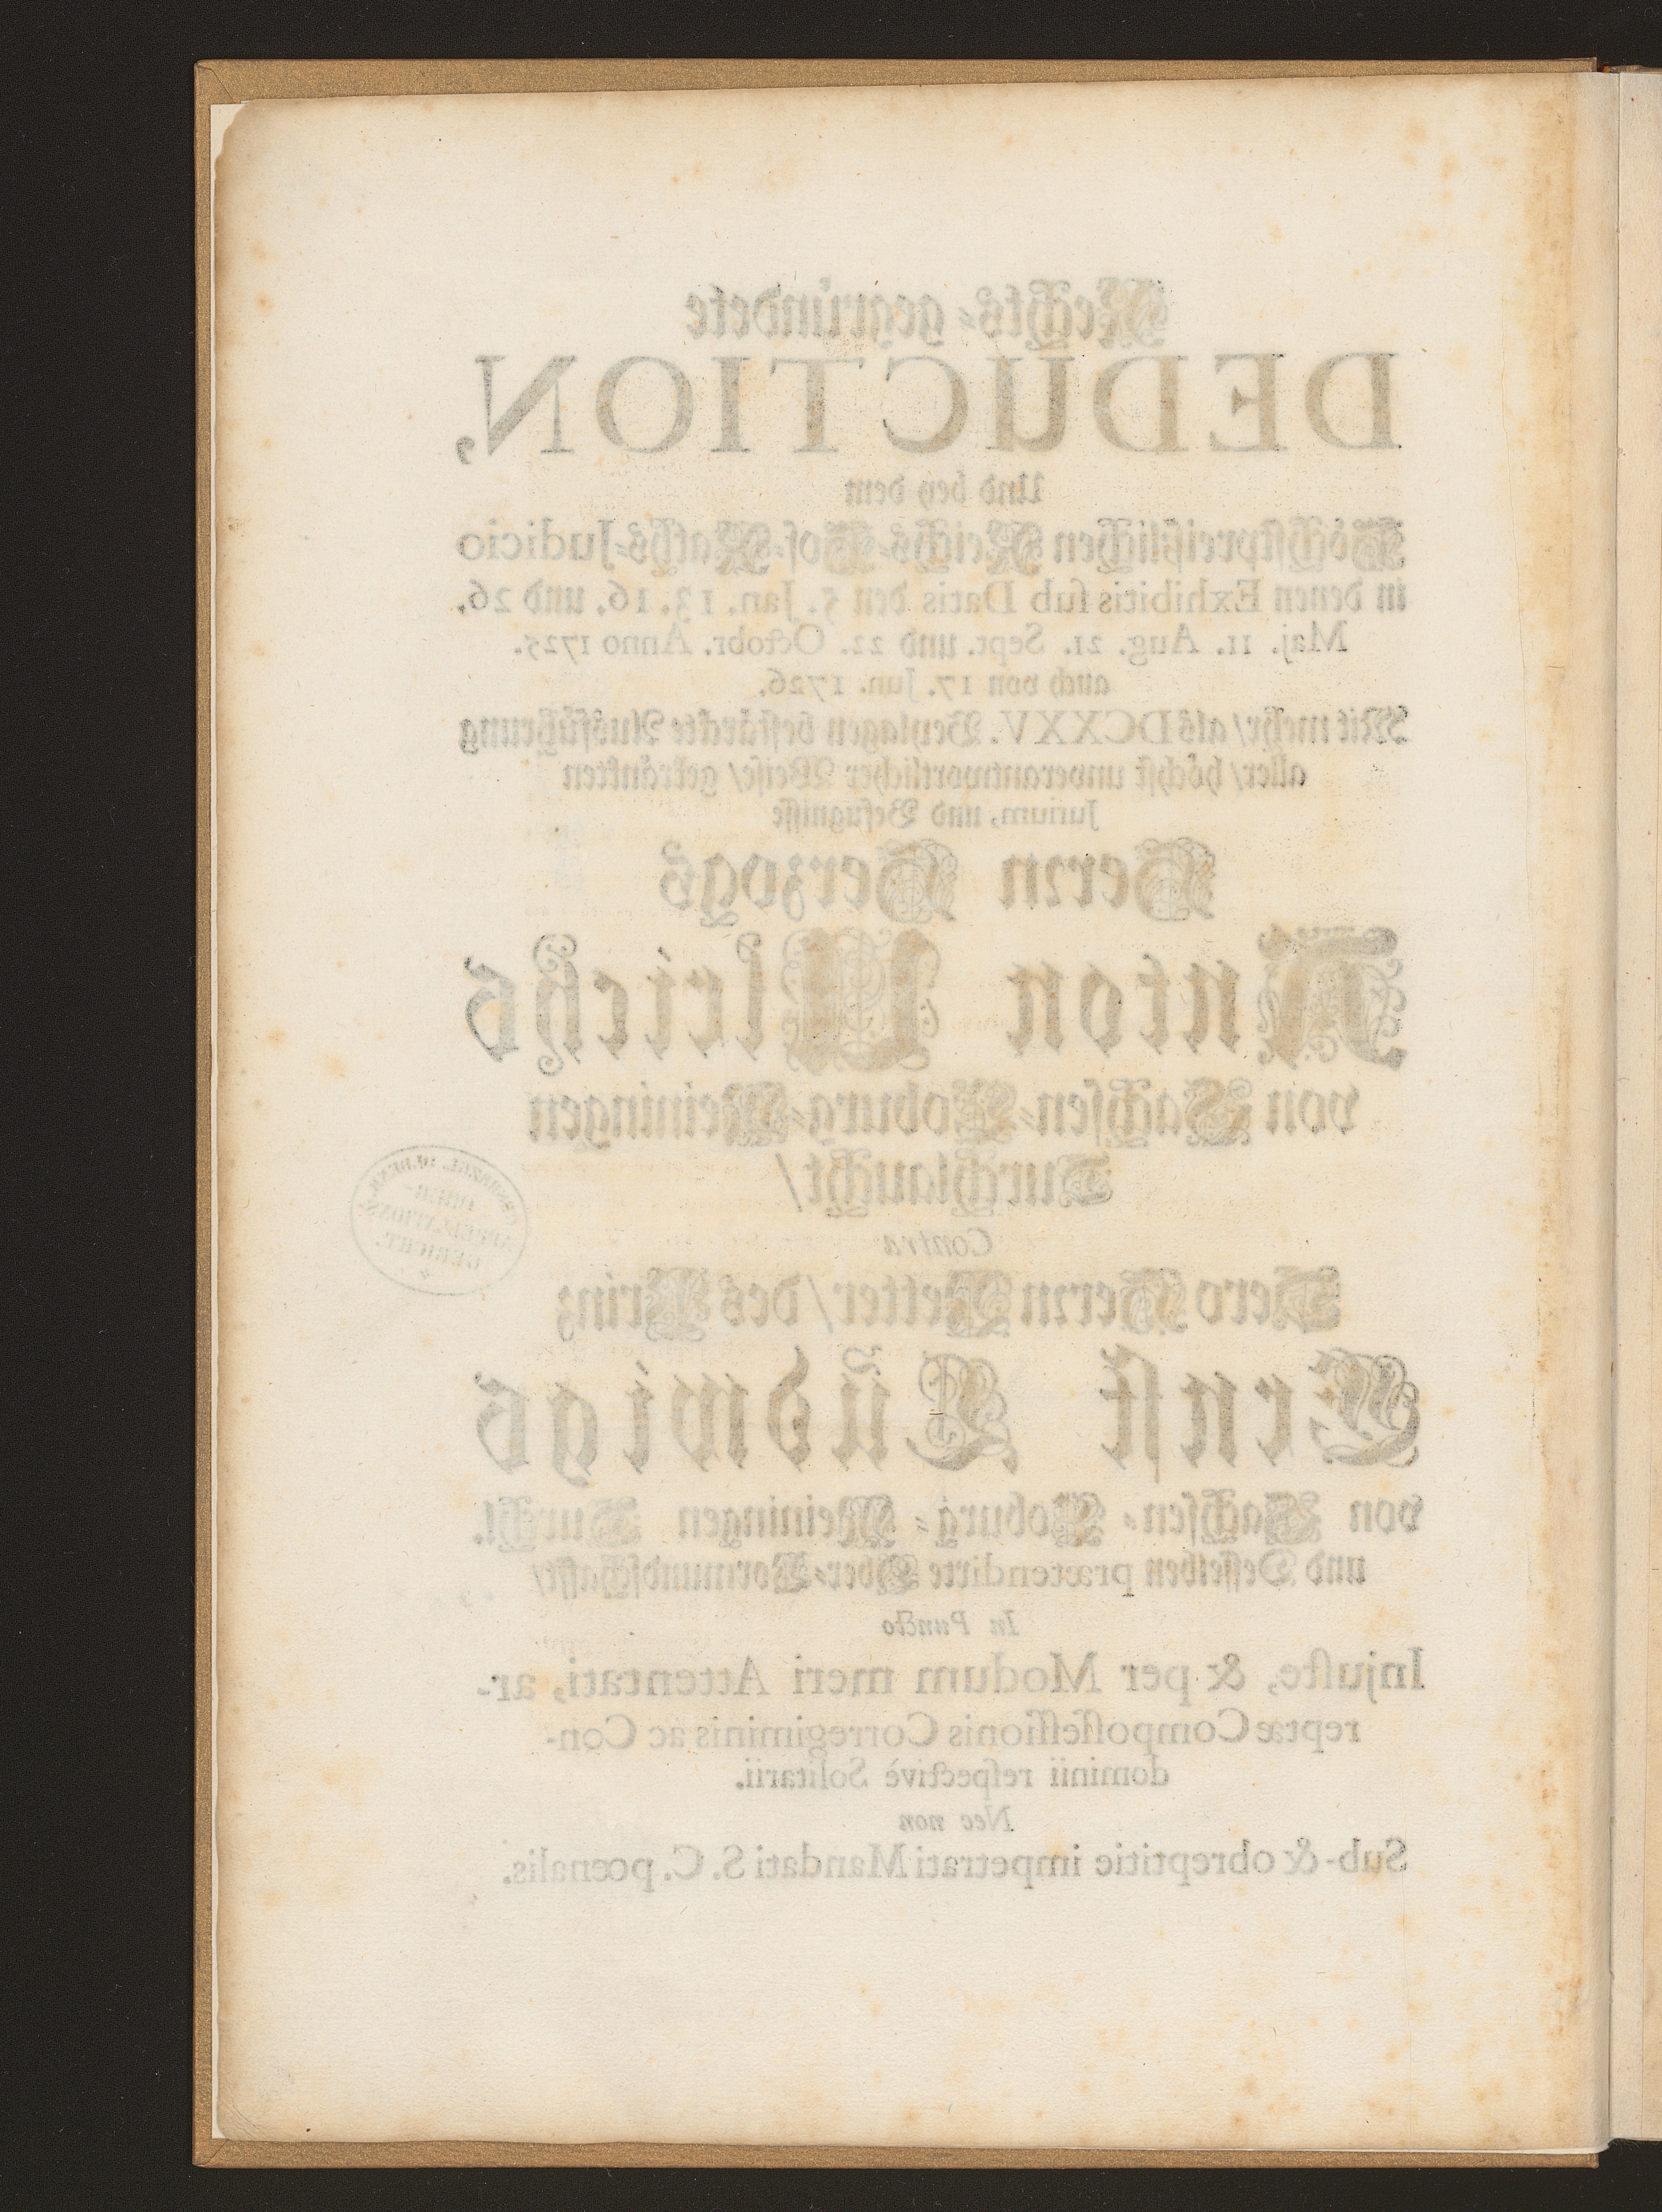 Rechts-gegründete
DEDUCTION,
Und bey dem
Höchstpreißlichen Reichs-Hof-Raths-Judicio
in denen Exhibitis sub Datis den 5. Jan. 13. 16. und 26.
Maj. 11. Aug. 21. Sept. und 22. Octobr. Anno 1725.
auch von 17. Jun. 1726.
Mit mehr/ als DCXXV. Beylagen bestärckte Ausführung
aller/ höchst unverantwortlicher Weise/ gekränkten
Jurium, und Befugnisse
Herrn Herzogs
Anton Ulrichs
von Sachsen-Coburg-Meiningen
Durchlaucht/
Contra
Dero Herrn Vetter/ des Prinz
Ernst Ludwigs
von Sachsen-Coburg-Meiningen Durchl.
und Desselben prætendirte Ober-Vormundschafft/
In Puncto
Injuste, & per Modum meri Attentati, ar-
reptæ Compossessionis Corregiminis ac Con-
dominii respectivè Solitarii.
Nec non
Sub- & obreptitie impetrati Mandati S. C. pœnalis.
OBER-
APPELLATIONS-
GERICHT.